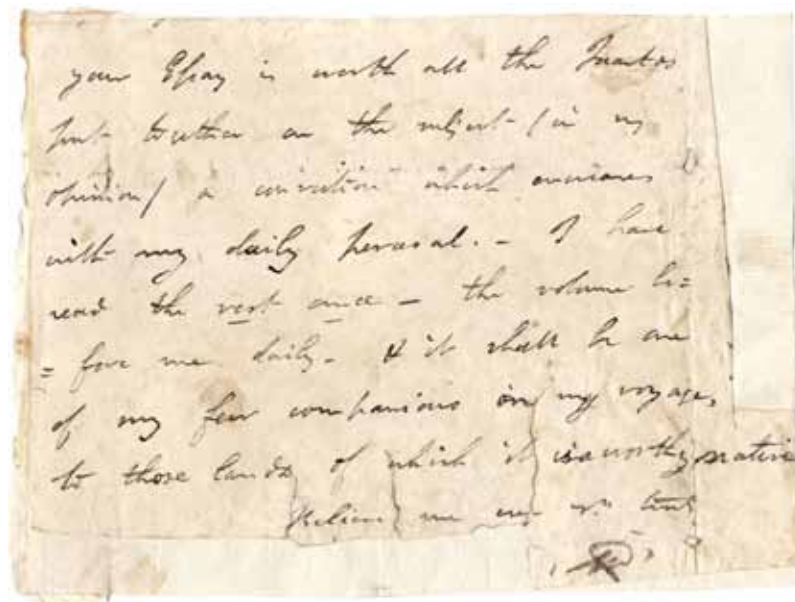 your Essay is worth all the Quartos
put together on the subject (in my
opinion) a conviction which increases
with my daily perusal. - I have
read the rest once - the volume be=
= fore me daily - & it shall be one
of my few companions on my voyage,
to those lands of which it is a worthy native
Believe me ever yrs truly